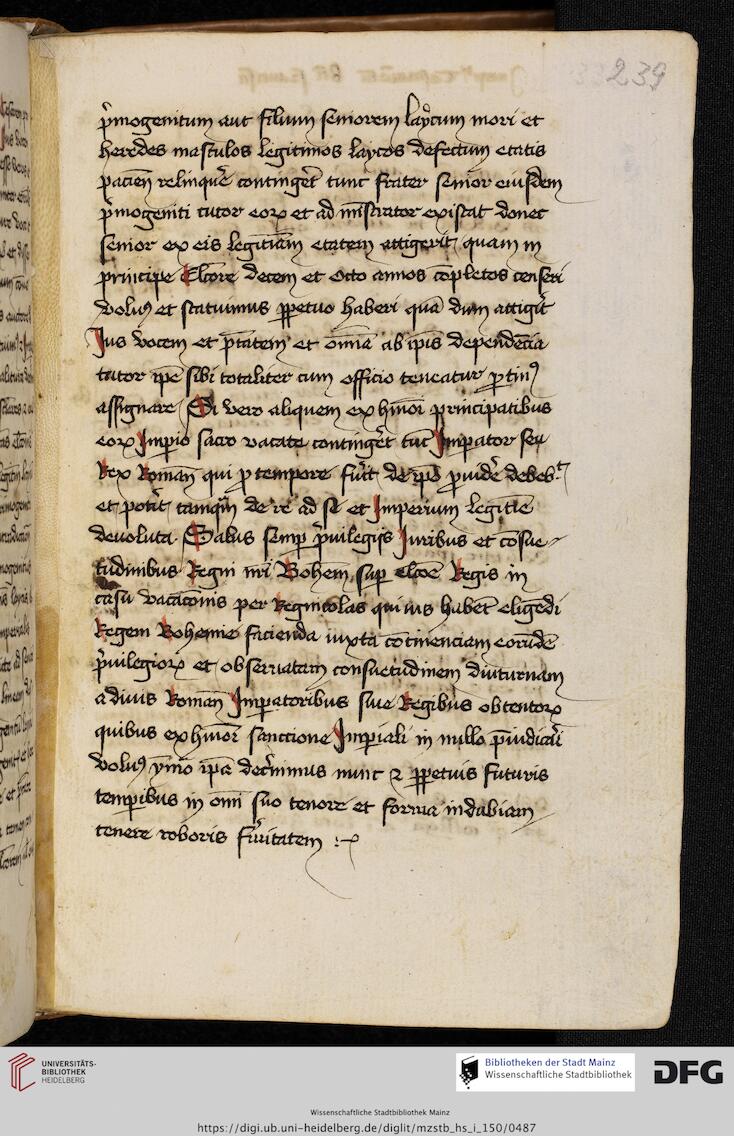 239
p̄mogenitum aut filium seniorem laycum mori et
heredes masculos legitimos laycos defectum etatis
pacien̄ relinque᷑ continget᷑ tunc frater senior eiusdem
p̄mogeniti tutor eoꝝ et administrator existat donec
senior ex eis legitiām etatem attigerit quam in
principe Elcore decem et octo annos cōpletos censeri
volumꝰ et statuimus ꝑpetuo haberi quā dum attigit᷑
Jus vocem et ptātem et omīa ab ipīs dependēcia
tutor ipē sibi totaliter cum officio teneatur ꝓtinꝰ
assignare Si vero aliquem ex hmōi principatibus
eoꝝ Jmperio sacro vacare continget᷑ tūc Jmperator seu
Rex Roman̄ qui ꝓ tempore fuit᷑ de ipō ꝓuide᷑ debebit
et poterit᷑ tamqm̄ de re ad se et Jmperium legitīe
deuoluta Saluis semꝑ p̄uilegijs Juribus et cōsue
tudinibus Regni nr̄i Bohem̄ suꝑ elcōe Regis in
casu vacacōnis per Regnicolas qui ius habent᷑ eligēdi
Regem Bohemie facienda iuxta cōtinenciam eorundē
p̄uilegioꝝ et obseruatam consuetudinem diuturnam
a diuis Roman̄ Jmꝑatoribus siue Regibus obtentoꝝ
quibus ex hmōi sanctione Jmꝑiali in nullo p̄iudicari
volumꝰ ymō ipā decernimus nunc ⁊ ꝑpetuis futuris
temꝑibus in omī suo tenore et forma indubiam
tenere roboris firmitatem :~
UNIVERSITÄTS-
BIBLIOTHEK
HEIDELBERG
Bibliotheken der Stadt Mainz
Wissenschaftliche Stadtbibliothek
DFG
Wissenschaftliche Stadtbibliothek Mainz
https://digi.ub.uni-heidelberg.de/diglit/mzstb_hs_i_150/0487